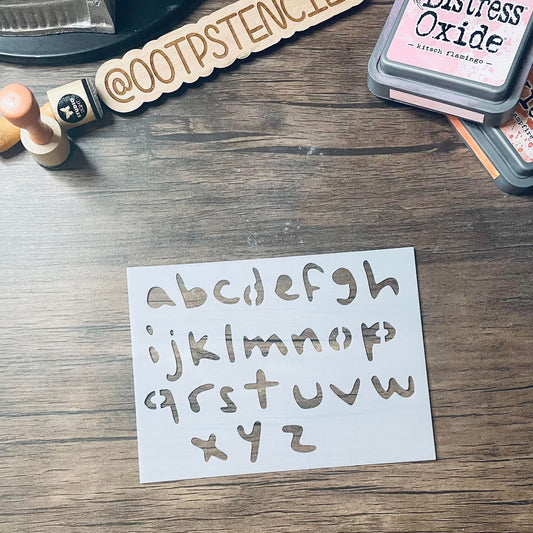 @OOTPSTENCIL
Distress
Oxide
- kitsch flamingo -
abcdefgh
ijklmnop
qrstuvw
xyz